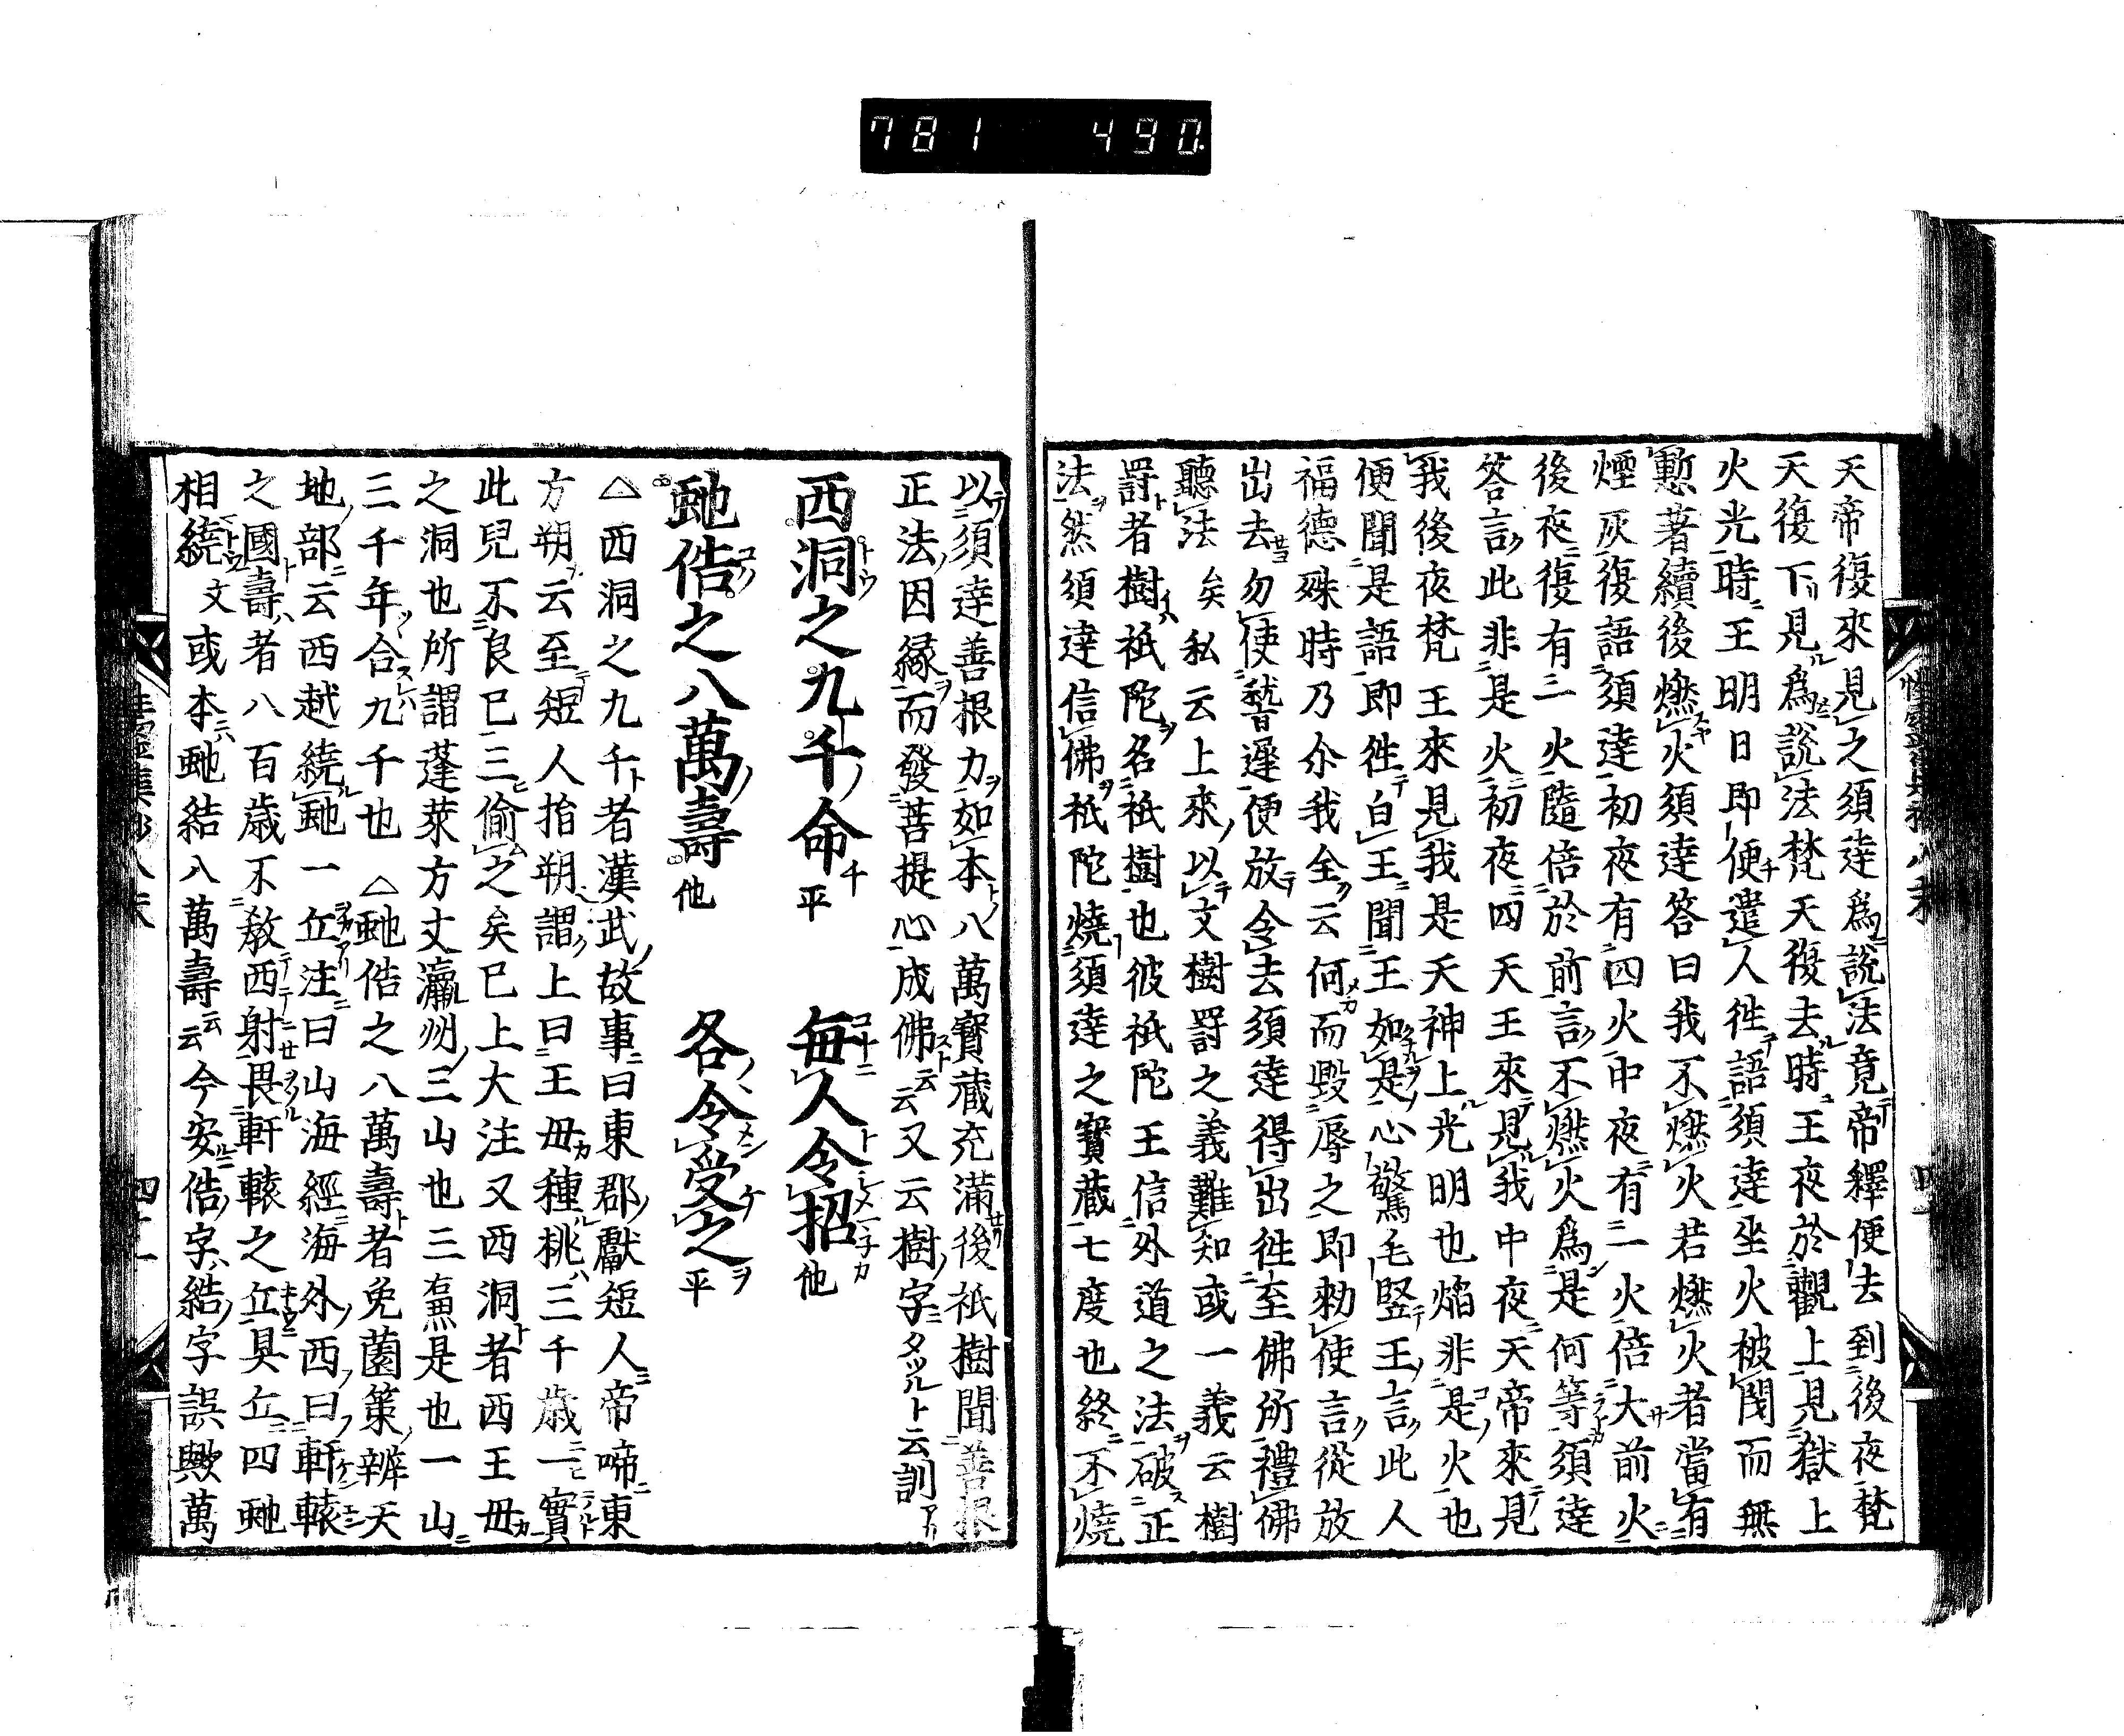 781 490
天帝復來見之須達爲說法竟帝釋便去到後夜梵
天復下見爲說法梵天復去時王夜於觀上見獄上
火光時王明日即便遣人徃語須達坐火被閇而無
慙著續後燃火須達答曰我不燃火若燃火者當有
煙灰復語須達初夜有四火中夜有一火倍大前火
後夜復有一火隨倍於前言不燃火爲是何等須達
答言此非是火初夜四天王來見我中夜天帝來見
我後夜梵王來見我是天神上光明也焔非是火也
便聞是語即徃白王聞王如是心驚毛竪王言此人
福德殊時乃尒我全云何而毀辱之即勑使言從放
出去勿使稽遲便放令去須達得出徃至佛所禮佛
聽法矣私云上來以文樹罸之義難知或一義云樹
罸者樹祇陀名祇樹也彼祇陀王信外道之法破正
法然須達信佛祇陀燒須達之寳藏七度也終不燒
以須達善根力如本八萬寳藏充滿後祇樹聞善根
正法因縁而發菩提心成佛云云又云樹字タツルト云訓アリ
西洞之九千命平 每人令招他
虵俈之八萬壽他 各令受之平
△西洞之九千者漢武故事曰東郡獻短人帝啼東
方朔云至短人指朔謂上曰王毋種桃三千歲一實
此兒不良巳三偷之矣巳上大注又西洞者西王毋
之洞也所謂蓬萊方丈瀛州三山也三是也一山
三千年合九千也 △虵俈之八萬壽者免薗策辨天
地部云西越繞虵一丘注曰山海經海外西曰軒轅
之國壽者八百歲不敎西射畏軒轅之丘具丘四虵
相繞文或本虵結八萬壽云云今安俈字結字誤歟萬